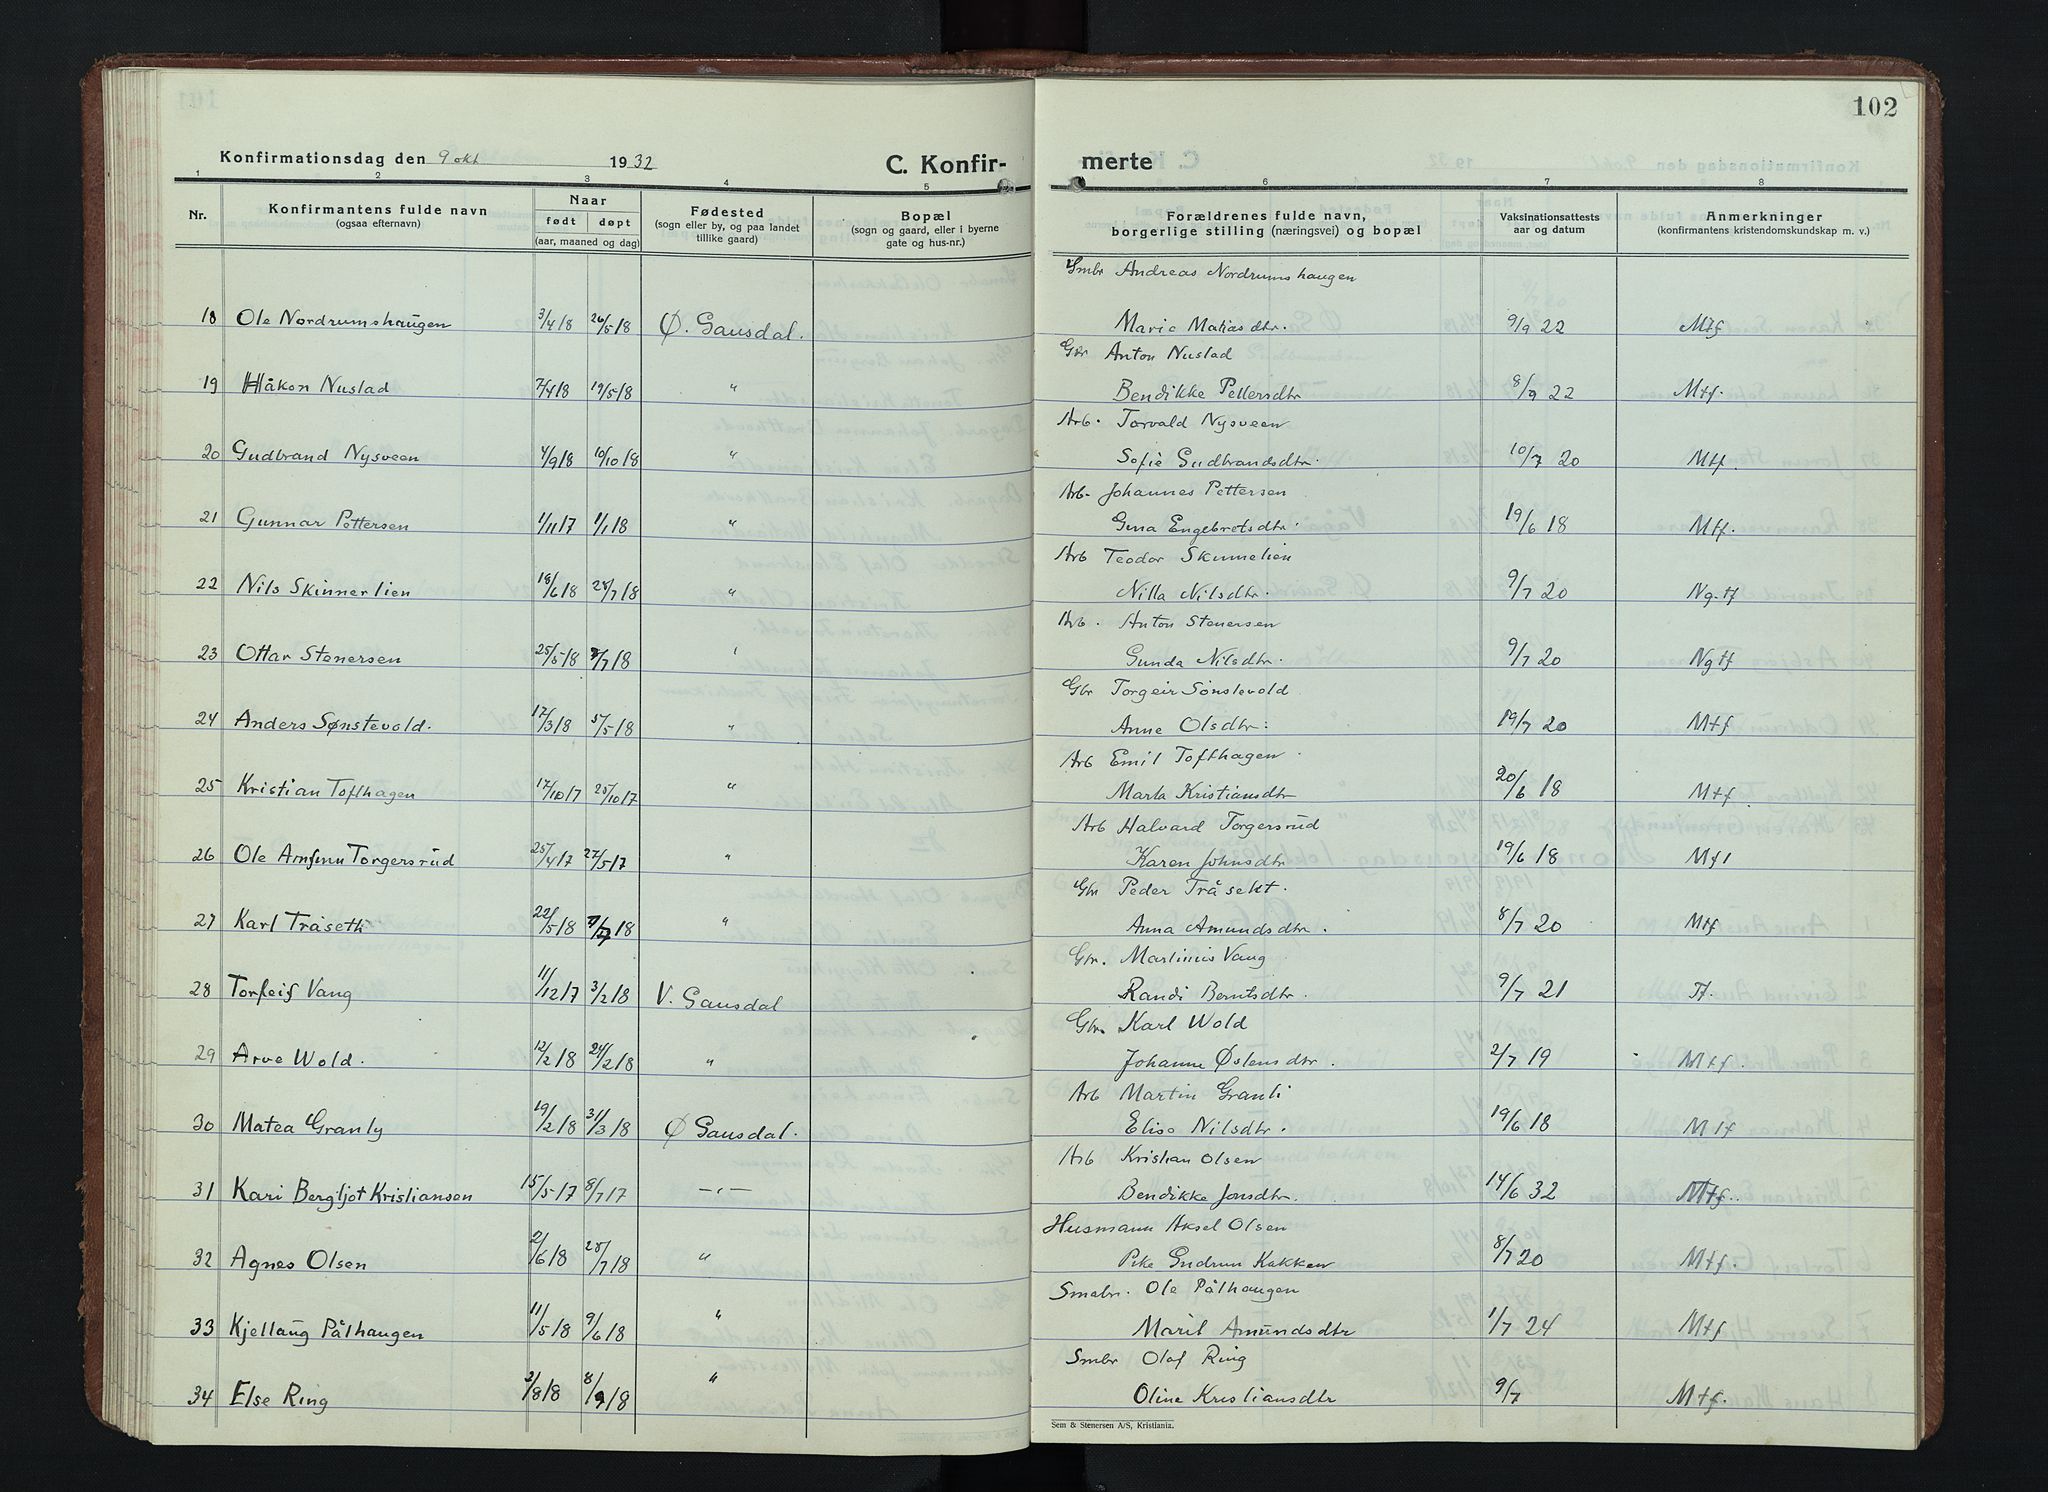 102
Konfirmationsdag den 9 okt 1932
C. Konfir-
merte
1 2 3 4 5 6 7 8
Nr.
Konfirmantens fulde navn
(ogsaa efternavn)
Naar
født døpt
(aar, maaned og dag)
Fødested
(sogn eller by, og paa landet
tillike gaard)
Bopæl
(sogn og gaard, eller i byerne
gate og hus-nr.)
Forældrenes fulde navn,
borgerlige stilling (næringsvei) og bopæl
Vaksinationsattests
aar og datum
Anmerkninger
(konfirmantens kristendomskundskap m. v.)
Smbr Andreas Nordrumshaugen
18 Ole Nordrumshaugen 3/4 18 26/5 18 Ø. Gausdal. Marie Matiasdtr. 9/9 22 Mtf
Gbr Anton Nustad
19 Håkon Nustad 7/4 18 19/5 18 " Bendikke Pettersdtr 8/9 22 Mtf.
Arb. Torvald Nysveen
20 Gudbrand Nysveen 4/9 18 10/10 18 " Sofie Gudbrandsdtr. 10/7 20 Mtf.
Arb. Johannes Pettersen
21 Gunnar Pettersen 1/11 17 1/1 18 " Gina Engebretsdtr. 19/6 18 Mtf.
Arb Teodor Skinnerlien
22 Nils Skinnerlien 18/6 18 28/7 18 " Nilla Nilsdtr. 9/7 20 Ng.tf
Arb. Anton Stenersen
23 Ottar Stenersen 25/5 18 /7 18 " Gunda Nilsdtr. 9/7 20 Ngtf
Gbr Torgeir Sønstevold
24 Anders Sønstevold. 17/3 18 5/5 18 " Anne Olsdtr. 19/7 20 Mtf
Arb Emil Tofthagen
25 Kristian Tofthagen 17/10 17 25/10 17 " Marta Kristiansdtr 20/6 18 Mtf.
Arb Halvard Torgersrud
26 Ole Arnfinn Torgersrud 25/4 17 27/5 17 " Karen Johnsdtr 19/6 18 Mtf
Gbr Peder Tråseth.
27 Karl Tråseth 22/5 18 /7 18 " Anna Amundsdtr. 8/7 20 Mtf
Gbr. Martinius Vang
28 Torleif Vang 11/12 17 3/2 18 V. Gausdal Randi Berntsdtr. 9/7 21 Tf.
Gbr. Karl Wold
29 Arve Wold. 12/2 18 24/2 18 " Johanne Østensdtr. 2/7 19 Mtf.
Arb Martin Granli
30 Matea Granly 19/2 18 31/3 18 Ø Gausdal. Elise Nilsdtr. 19/6 18 Mtf
Arb Kristian Olsen
31 Kari Bergljot Kristiansen 15/5 17 8/7 17 —"— Bendikke Jonsdtr. 14/6 32 Mtf.
Husmann Aksel Olsen
32 Agnes Olsen 2/6 18 28/7 18 " Pike Gudrun Kakken 8/7 20 Mtf.
Smabr. Ole Pålhaugen
33 Kjellaug Pålhaugen 11/5 18 9/6 18 " Marit Amundsdtr 1/7 24 Mtf
Smbr Olaf Ring
34 Else Ring 3/8 18 8/9 18 " Oline Kristiansdtr 9/7 Mtf.
Sem & Stenersen A/S, Kristiania.